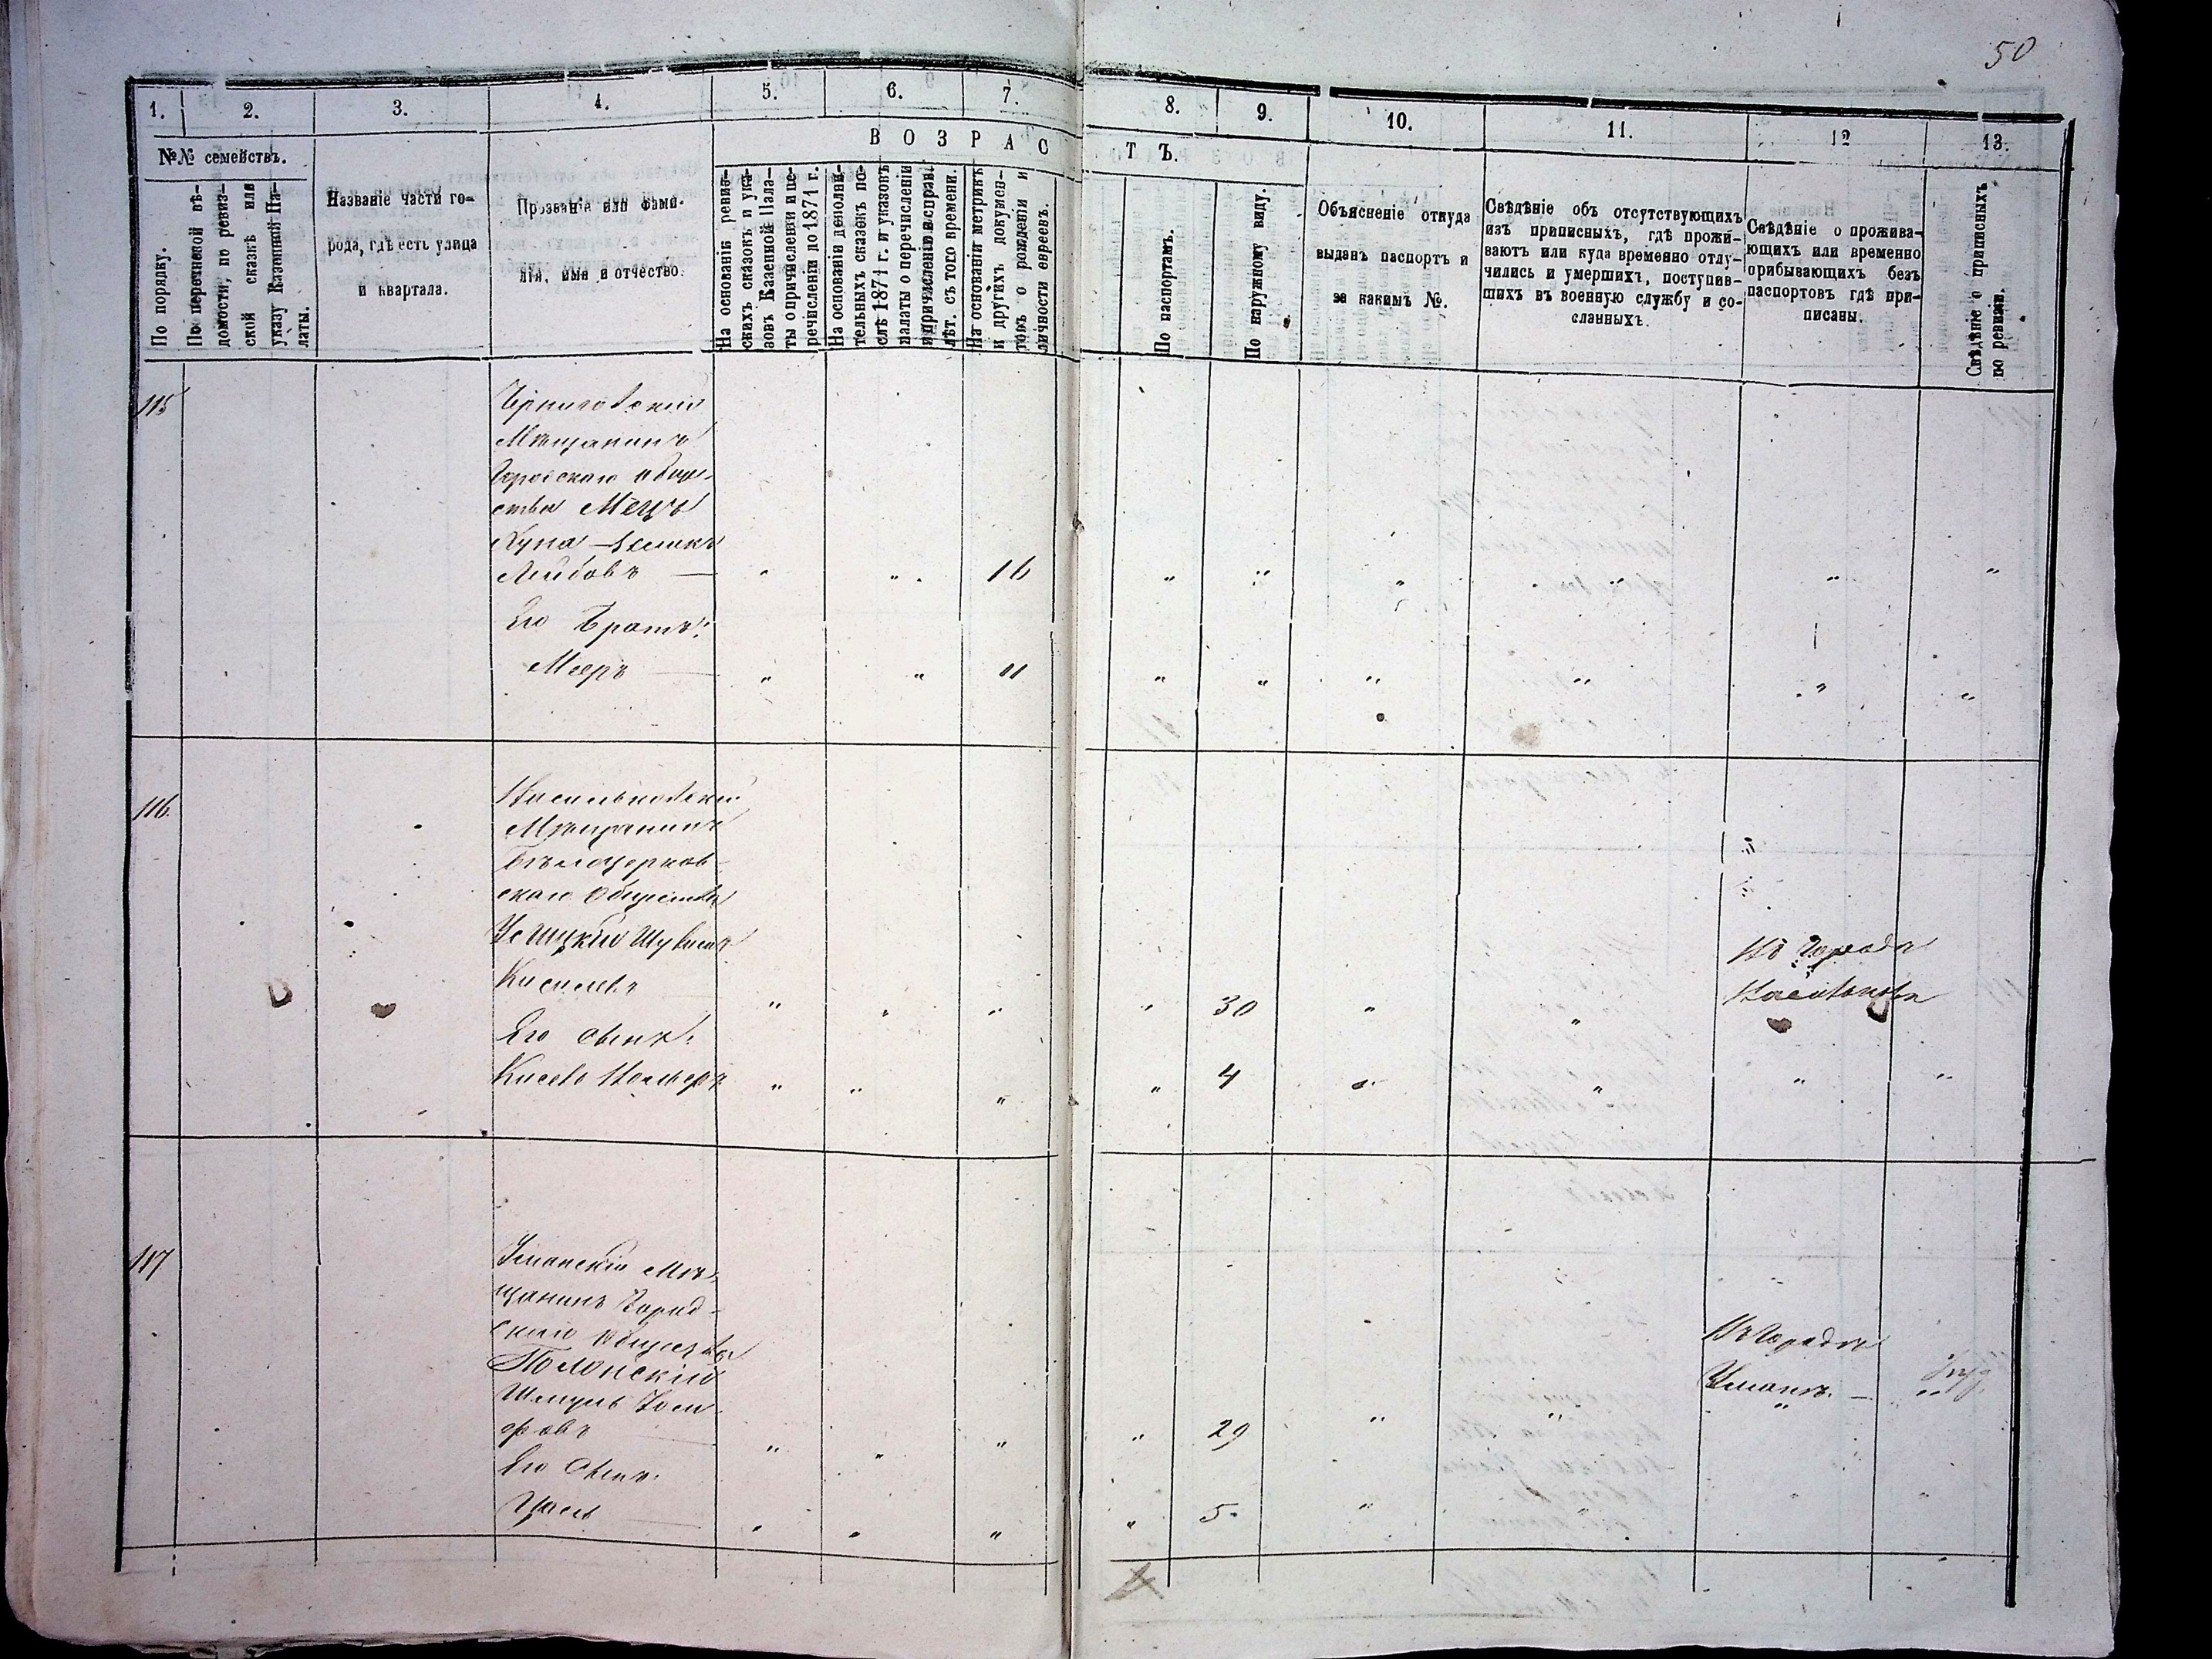 50
1.
2.
3.
4.
5.
6.
7.
8.
9.
10.
11.
12
13.
№№ семействъ.
ВОЗРАСТЪ.
По порядку.
По перечневой вѣ-
домости, по ревиз-
ской сказкѣ или
указу Казенной Па-
латы.
Названіе части го-
рода, гдѣ есть улица
и квартала.
Прозваніе или фами-
лія, имя и отчество.
На основаніи ревиз-
скихъ сказокъ и ука-
зовъ Казенной Пала-
ты о причисленіи и пе-
речисленіи до 1871 г.
На основаніи дополни-
тельныхъ сказокъ по-
слѣ 1871 г. и указовъ
палаты о перечисленіи
и причисленію и справ.
лѣт. съ того времени.
На основаніи метрикъ
и другихъ докумен-
товъ о рожденіи и
личности евреевъ.
По паспортамъ.
По наружному виду.
Объясненіе откуда
выданъ паспортъ и
за какимъ №.
Свѣдѣніе объ отсутствующихъ
изъ приписныхъ, гдѣ прожи-
ваютъ или куда временно отлу-
чились и умершихъ, поступив-
шихъ въ военную службу и со-
сланныхъ.
Свѣдѣніе о прожива-
ющихъ или временно
прибывающихъ безъ
паспортовъ гдѣ при-
писаны.
Свѣдѣніе о приписныхъ
по ревизіи.
115
Черниговскій
Мѣщанинъ
общe-
ства
Лейбовъ — " " 16 " " " " " "
Его Братъ:
Мееръ — " " 11 " " " " " "
116.
Васильковскій
Мѣщанинъ
Бѣлоцерков-
скаго Общества
Въ Городѣ
Киселевъ " " " " 30 " " Васильковѣ
Его сынъ:
" " " " 4 " " " "
117
Уманскій Мѣ-
щанинъ Город-
скаго Общества
Въ Городѣ
Полонскій
Умань. —
Шмуль Іоси-
фовъ " " " " 29 " " "
Его Сынъ:
" " " " 5 " " " "